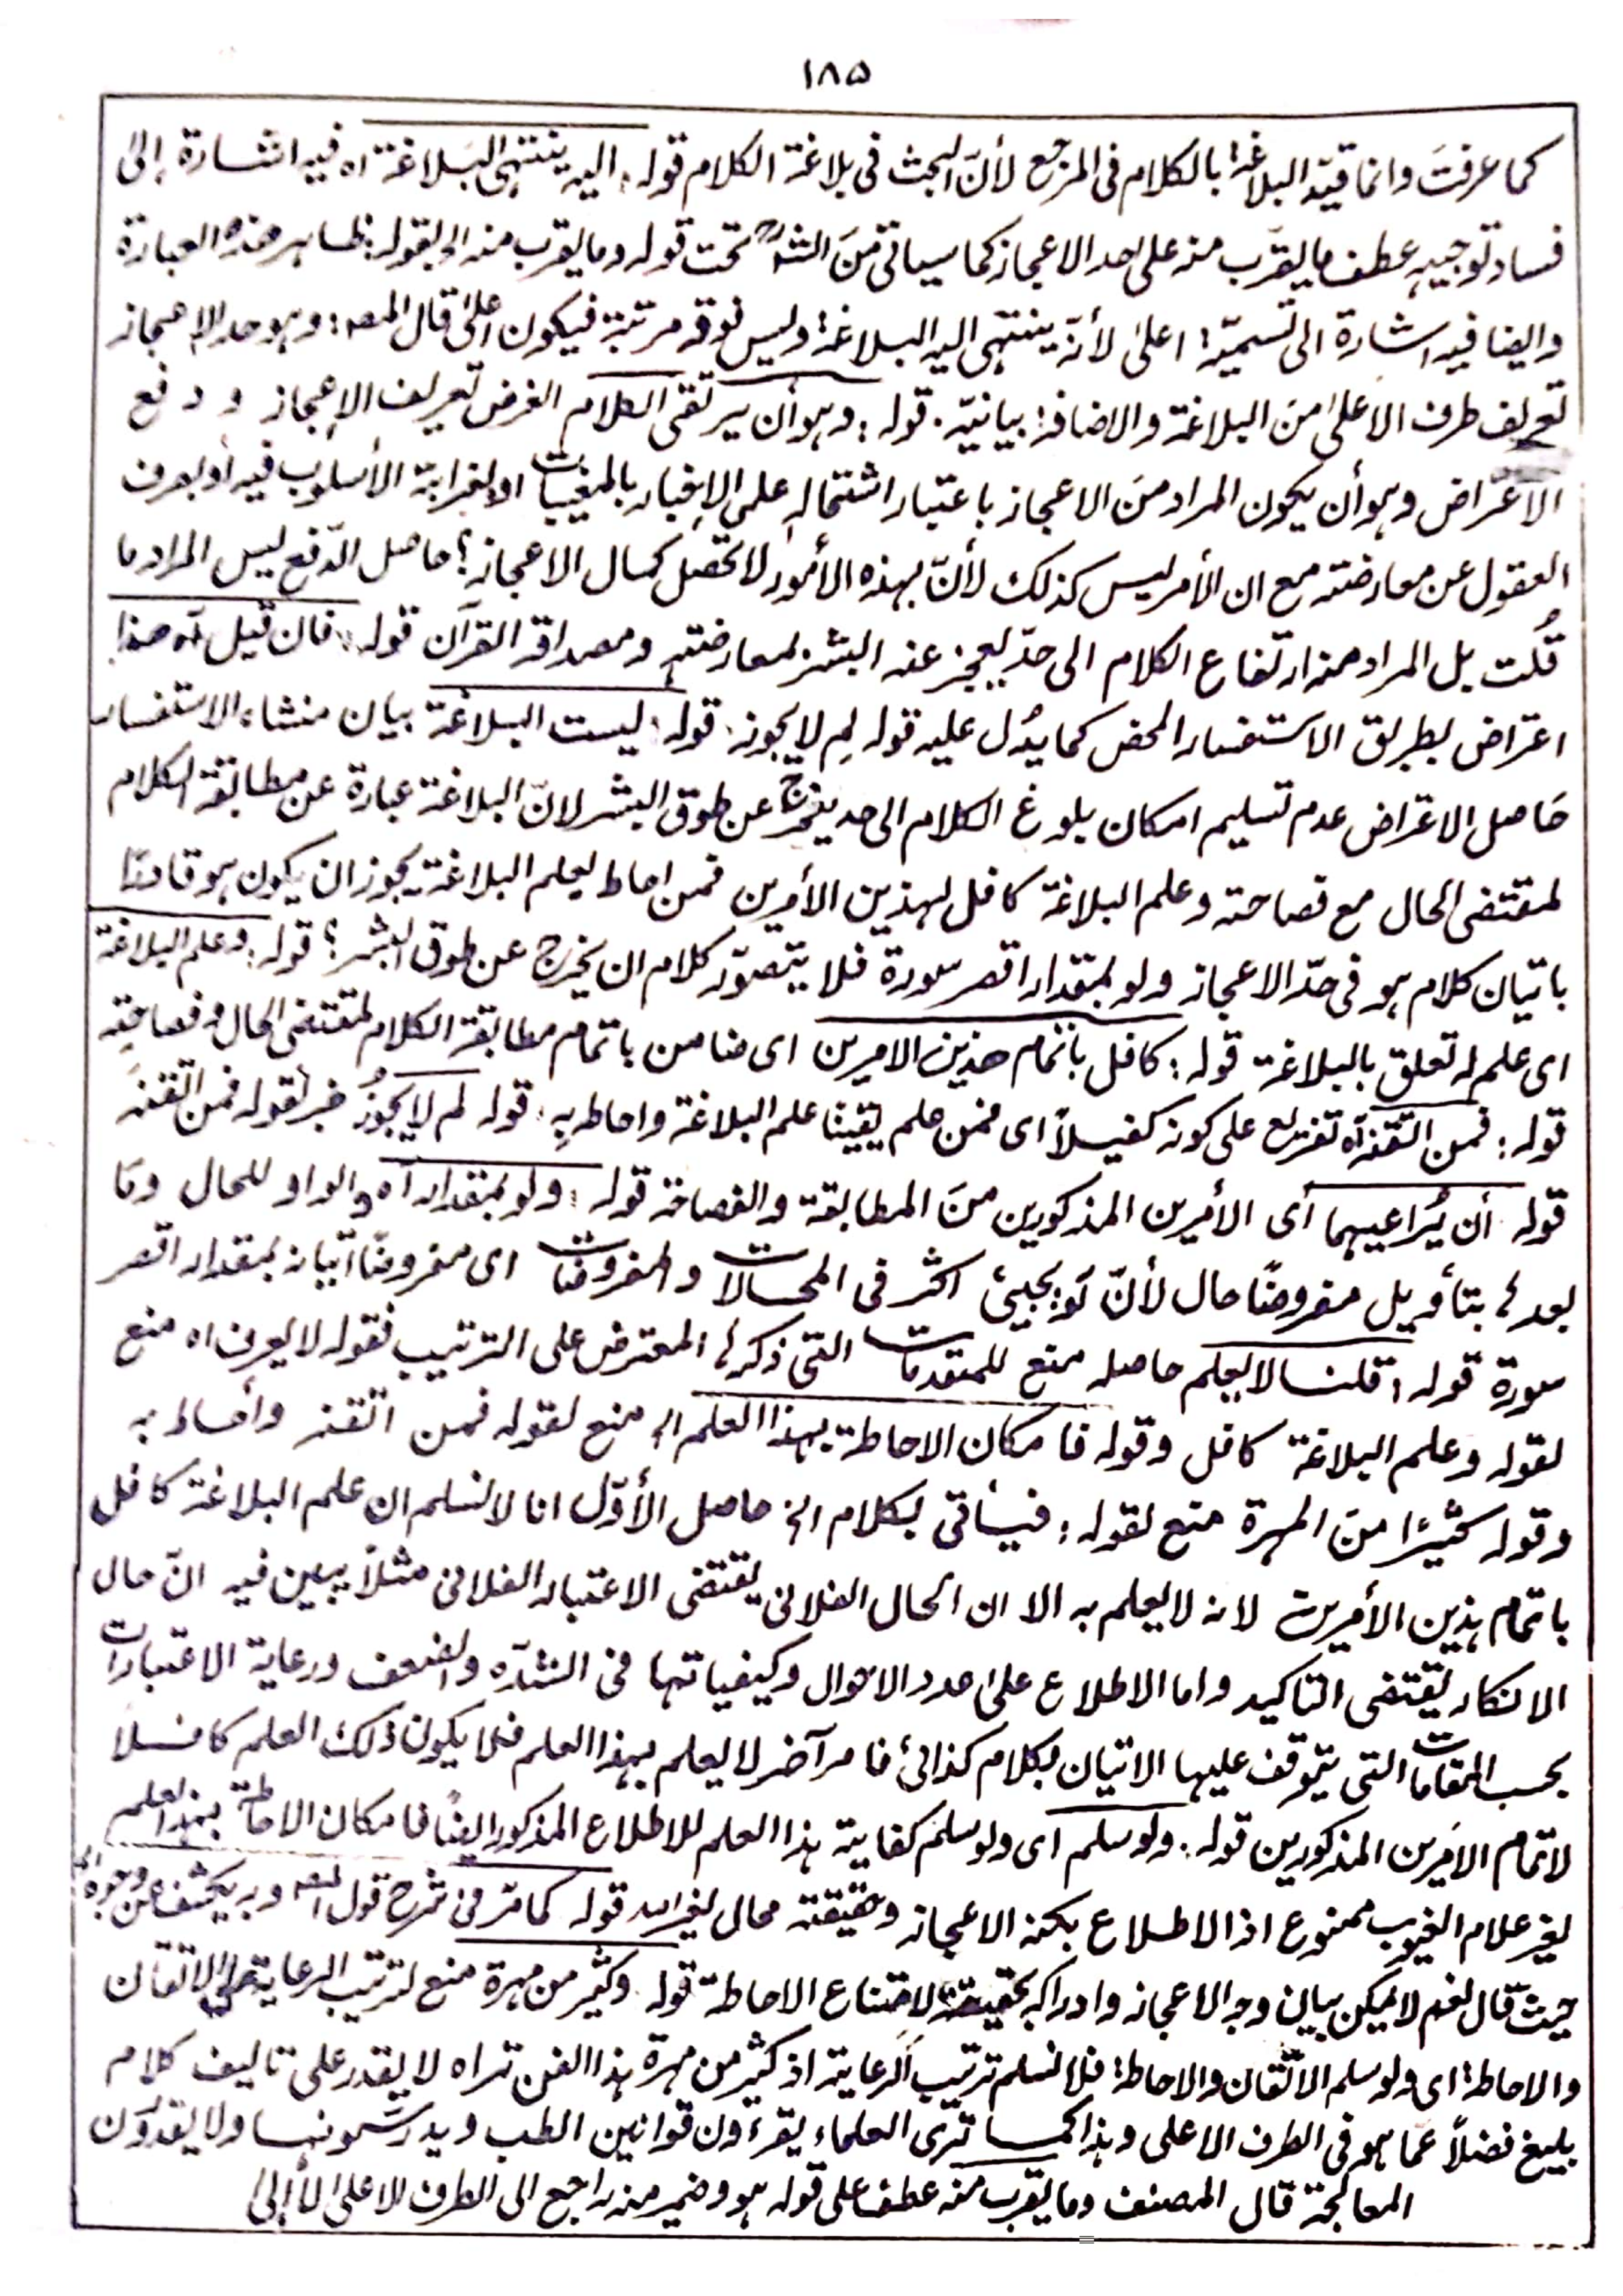 ١٨۵
كما عرفتَ وانما قيّد البلاغة بالكلام فى المرجع لأنّ البحث فى بلاغة الكلام قوله: اليه ينتهى البَلاغة اه فيه اشارة إلى
فساد توجيهِ عطف ما يقرّب منه على حد الاعجاز كما سياتى مِنَ الشرح تحت قوله وما يقرب منه الخ بقوله: ظاهر هذه العبارة
وايضا فيه اشارة الى تسميّة اعلى لأنّه ينتهى اليه البلاغة وليس فوقه مرتبة فيكون اعلى قال المصـ: وهو حد الإعجاز
تعريف طرف الاعلىٰ مِنَ البلاغة والاضافة بيانيّة. قوله: وهو أن يرتقى الكلام الغرض تعريف الإعجاز ودفع
الاعتراض وهو أن يكون المراد مِنَ الاعجاز باعتبار اشتماله على الإخبار بالمغيبات او لغرابة الأسلوب فيه أو بصرف
العقول عن معارضته مع ان الأمر ليس كذلك لأنّ بهذه الأمُور لا تحصل كمال الاعجاز؟ حاصل الدّفع ليس المراد ما
قُلت بل المراد منه ارتفاع الكلام الى حدّ يعجز عنه البشر لمعارضته ومصداقه القرآن قوله: فان قيل آه هذا
اعتراض بطريق الاستفسار المحض كما يدُل عليه قوله لِم لا يجوز. قوله: ليست البلاغة بيان منشاء الاستفسار
حَاصل الاعتراض عدم تسليم امكان بلوغ الكلام الى حد يخرج عن طوق البشر لانّ البلاغة عبارة عن مطابقة الكلام
لمقتضى الحال مع فصاحته وعلم البلاغة كافل لهذين الأمرين فمن احاط بعلم البلاغة يجوز ان يكون هو قادرًا
باتيان كلام هو فى حدّ الاعجاز ولو بمقدار اقصر سورة فلا يتصوّر كلام ان يخرج عن طوق البشر؟ قوله: وعلم البلاغة
اى علم له تعلق بالبلاغة قوله: كافل باتمام هذين الامرين اى ضامن باتمام مطابقة الكلام لمقتضى الحال وفصاحته
قوله: فمن اتقنه آه تفريع على كونه كفيلاً اى فمن علم يقينًا علم البلاغة واحاط بِهِ: قوله لم لا يجوزُ خبر لقوله فمن اتقنه
قوله أن يُراعيهما أى الأمرين المذكورين مِنَ المطابقة والفصاحة قوله: ولو بمقدار آه والواو للحال ومَا
بعدها بتأويل مفروضًا حال لأنّ لَو يجيئ اكثر فى المحالات والمفروضات اى مفروضًا اتيانه بمقدار اقصر
سورة قوله: قلنا لا يعلم حاصله منع للمقدمات التى ذكرها المعترض على الترتيب فقوله لا يعرف اه منع
لقوله وعلم البلاغة كافل وقوله فامكان الاحاطة بهذا العلم الخ منع لقوله فمن اتقنه وأحاط به
وقوله كثيرًا مِنَ المهرة منع لقوله: فيأتى بكلام الخ حاصل الأوّل انا لا نسلم ان علم البلاغة كافل
باتمام هذين الأمرين لانه لا يعلم به الا ان الحال الفلانى يقتضى الاعتبار الفلانى مثلاً يبين فيه انّ حال
الانكار يقتضى التاكيد واما الاطلاع على عدد الاحوال وكيفياتها فى الشدّه والضعف ورعاية الاعتبارات
بحسب المقامات التى يتوقف عليها الاتيان بكلام كذائى فامر آخر لا يعلم بهذا العلم فلا يكون ذلك العلم كافلا
لاتمام الامَرين المذكورين قوله: ولو سلم اى ولو سلم كفاية هذا العلم للاطلاع المذكور ايضًا فامكان الاحاطة بهذا العلم
لغير علام الغيوب ممنوع اذ الاطلاع بكنه الاعجاز وحقيقته محال لغير الله قوله كما مَرّ فى شرح قول المصـ وبه يكشف عن وجوه الخ
حيث قال نعم لا يمكن بيان وجه الاعجاز وادراكه بحقيقته لامتناع الاحاطة قوله: وكثير من مهرة منع لترتب الرعاية على الاتقان
والاحاطة اى ولو سلم الاتّقان والاحاطة فلا نسلم ترتيب الرعاية اذ كثير من مهرة هذا الفن تراه لا يقدر على تاليف كلام
بليغ فضلاً عمّا هو فى الطرف الاعلى وهذا كما ترى العلماء يقرءون قوانين الطب ويدرسَونها ولا يقدرون
المعالجة قال المصنف وما يقرب منه عطف على قوله هو وضمير منه راجع الى الطرف الاعلى لا إلى